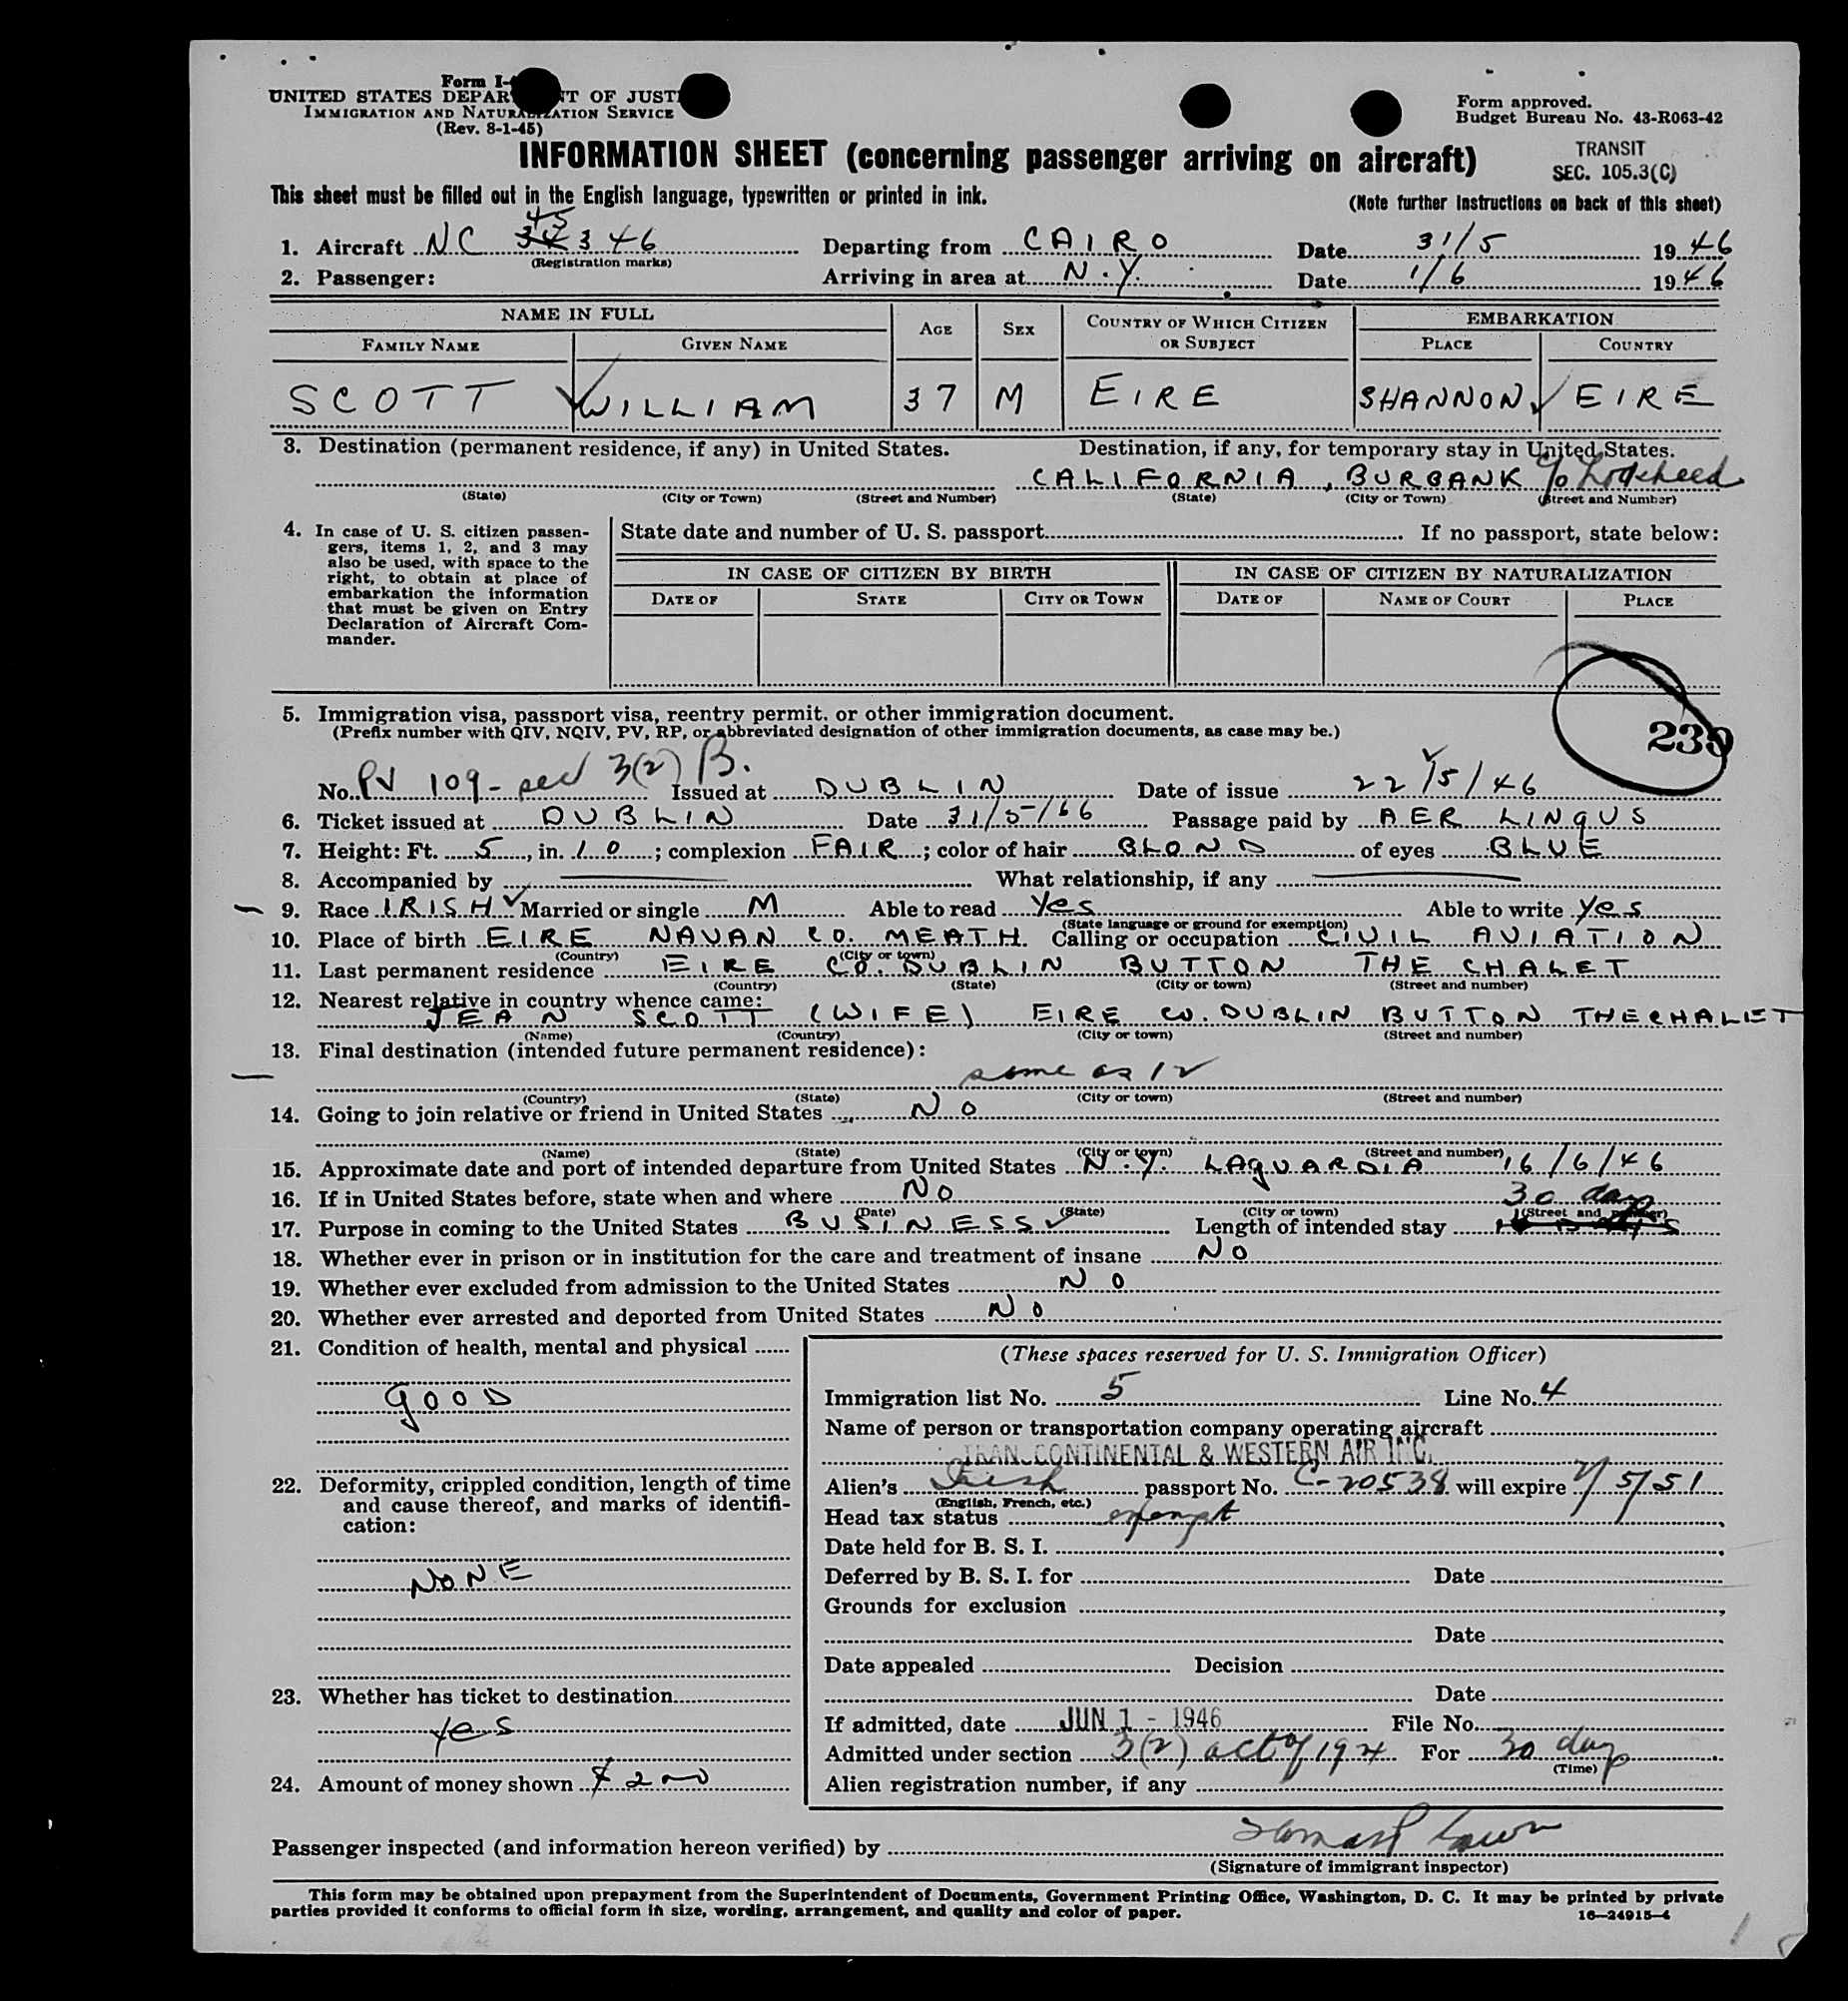 Form I-
UNITED STATES DEPAR T OF JUST
IMMIGRATION AND NATURALIZATION SERVICE
(Rev. 8-1-45)
Form approved.
Budget Bureau No. 43-R063-42
INFORMATION SHEET (concerning passenger arriving on aircraft)
TRANSIT
SEC. 105.3(C)
This sheet must be filled out in the English language, typewritten or printed in ink.
(Note further instructions on back of this sheet)
45
1. Aircraft NC 346 Departing from CAIRO Date 31/5 1946
(Registration marks)
2. Passenger: Arriving in area at N.Y. Date 1/6 1946
NAME IN FULL AGE SEX COUNTRY OF WHICH CITIZEN OR SUBJECT EMBARKATION
FAMILY NAME GIVEN NAME PLACE COUNTRY
SCOTT WILLIAM 37 M EIRE SHANNON EIRE
3. Destination (permanent residence, if any) in United States. Destination, if any, for temporary stay in United States.
CALIFORNIA, BURBANK c/o Lockheed
(State) (City or Town) (Street and Number) (State) (City or Town) (Street and Number)
4. In case of U. S. citizen passen-
gers, items 1, 2, and 3 may
also be used, with space to the
right, to obtain at place of
embarkation the information
that must be given on Entry
Declaration of Aircraft Com-
mander.
State date and number of U. S. passport If no passport, state below:
IN CASE OF CITIZEN BY BIRTH IN CASE OF CITIZEN BY NATURALIZATION
DATE OF STATE CITY OR TOWN DATE OF NAME OF COURT PLACE
239
5. Immigration visa, passport visa, reentry permit, or other immigration document.
(Prefix number with QIV, NQIV, PV, RP, or abbreviated designation of other immigration documents, as case may be.)
No. PV 109 - sec 3(2) B. Issued at DUBLIN Date of issue 22/5/46
6. Ticket issued at DUBLIN Date 31/5/46 Passage paid by AER LINGUS
7. Height: Ft. 5, in. 10; complexion FAIR; color of hair BLOND of eyes BLUE
8. Accompanied by What relationship, if any
9. Race IRISH Married or single M Able to read Yes Able to write Yes
(State language or ground for exemption)
10. Place of birth EIRE NAVAN CO. MEATH Calling or occupation CIVIL AVIATION
(Country) (City or town)
11. Last permanent residence EIRE CO. DUBLIN BUTTON THE CHALET
(Country) (State) (City or town) (Street and number)
12. Nearest relative in country whence came:
JEAN SCOTT (WIFE) EIRE CO. DUBLIN BUTTON THE CHALET
(Name) (Country) (City or town) (Street and number)
13. Final destination (intended future permanent residence):
same as 12
(Country) (State) (City or town) (Street and number)
14. Going to join relative or friend in United States No
(Name) (State) (City or town) (Street and number)
15. Approximate date and port of intended departure from United States N.Y. LAGUARDIA 16/6/46
16. If in United States before, state when and where No
(Date) (State) (City or town) (Street and number)
30 days
17. Purpose in coming to the United States BUSINESS Length of intended stay
18. Whether ever in prison or in institution for the care and treatment of insane No
19. Whether ever excluded from admission to the United States No
20. Whether ever arrested and deported from United States No
21. Condition of health, mental and physical
GOOD
22. Deformity, crippled condition, length of time
and cause thereof, and marks of identifi-
cation:
NONE
23. Whether has ticket to destination
Yes
24. Amount of money shown $200
(These spaces reserved for U. S. Immigration Officer)
Immigration list No. 5 Line No. 4
Name of person or transportation company operating aircraft
TRANSCONTINENTAL & WESTERN AIR INC.
Alien's Irish passport No. C-20538 will expire 2/5/51
(English, French, etc.)
Head tax status exempt
Date held for B. S. I.
Deferred by B. S. I. for Date
Grounds for exclusion
Date
Date appealed Decision
Date
If admitted, date JUN 1 - 1946 File No.
Admitted under section 3(2) act of 1924 For 30 days
(Time)
Alien registration number, if any
Passenger inspected (and information hereon verified) by
(Signature of immigrant inspector)
This form may be obtained upon prepayment from the Superintendent of Documents, Government Printing Office, Washington, D. C. It may be printed by private
parties provided it conforms to official form in size, wording, arrangement, and quality and color of paper.
16—24915-4